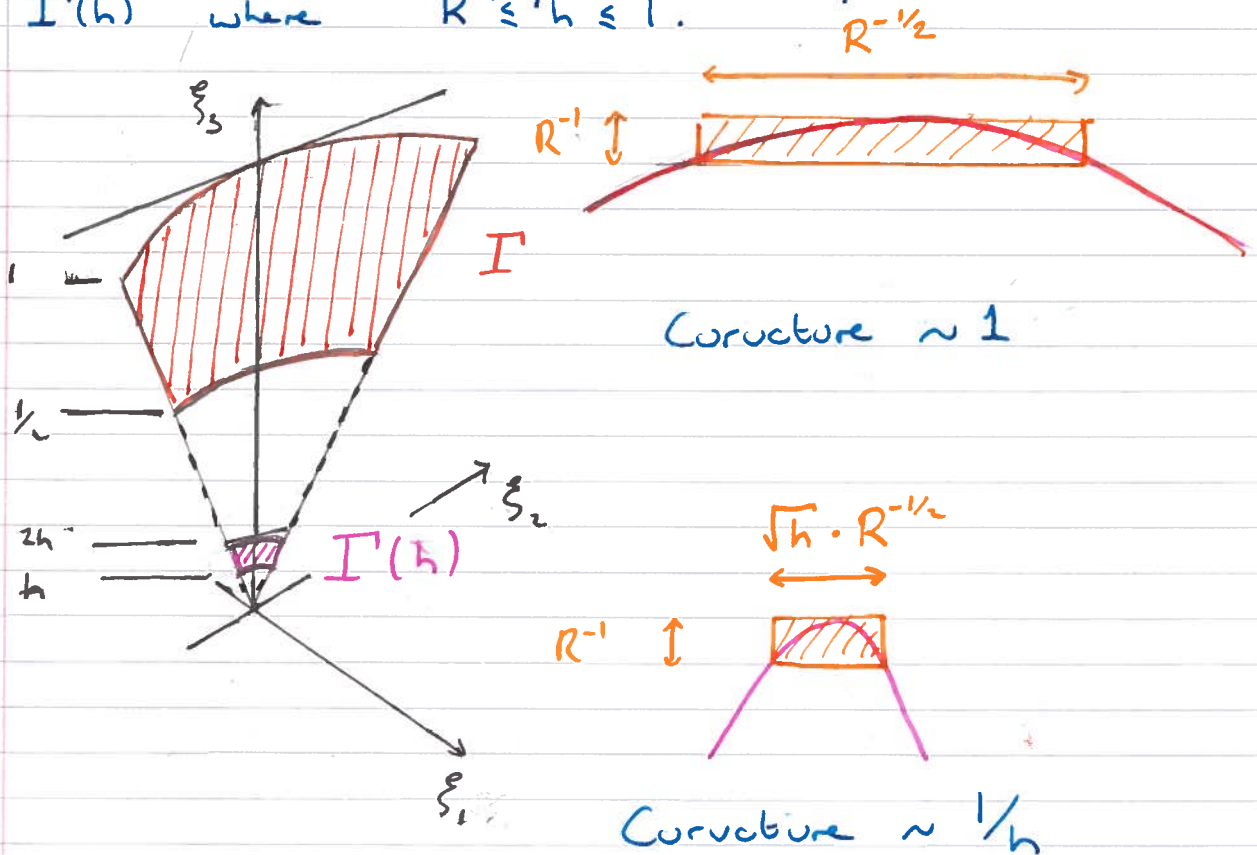 Γ(h) where R⁻¹ ≤ h ≤ 1.
R^{-1/2}
ξ₃
R⁻¹
Γ
1
Curvature ~ 1
1/2
ξ₂
√h · R^{-1/2}
2h
Γ(h)
h
R⁻¹
ξ₁
Curvature ~ 1/h